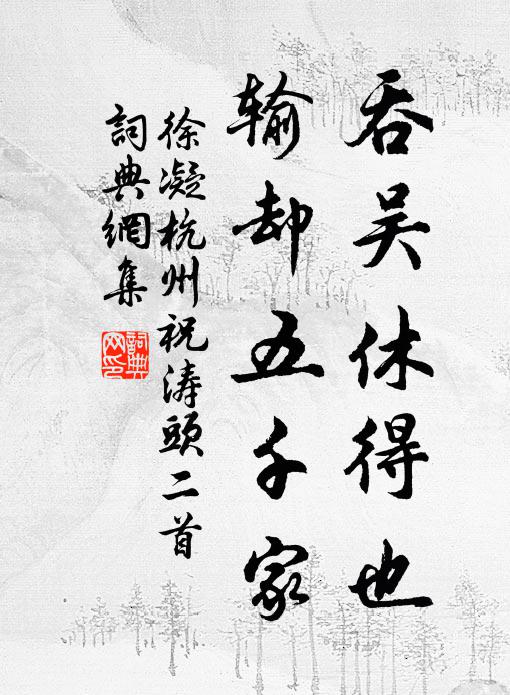 吞吴休得也
输却五千家
徐凝杭州祝涛頭二首
詞典網集
詞典網印